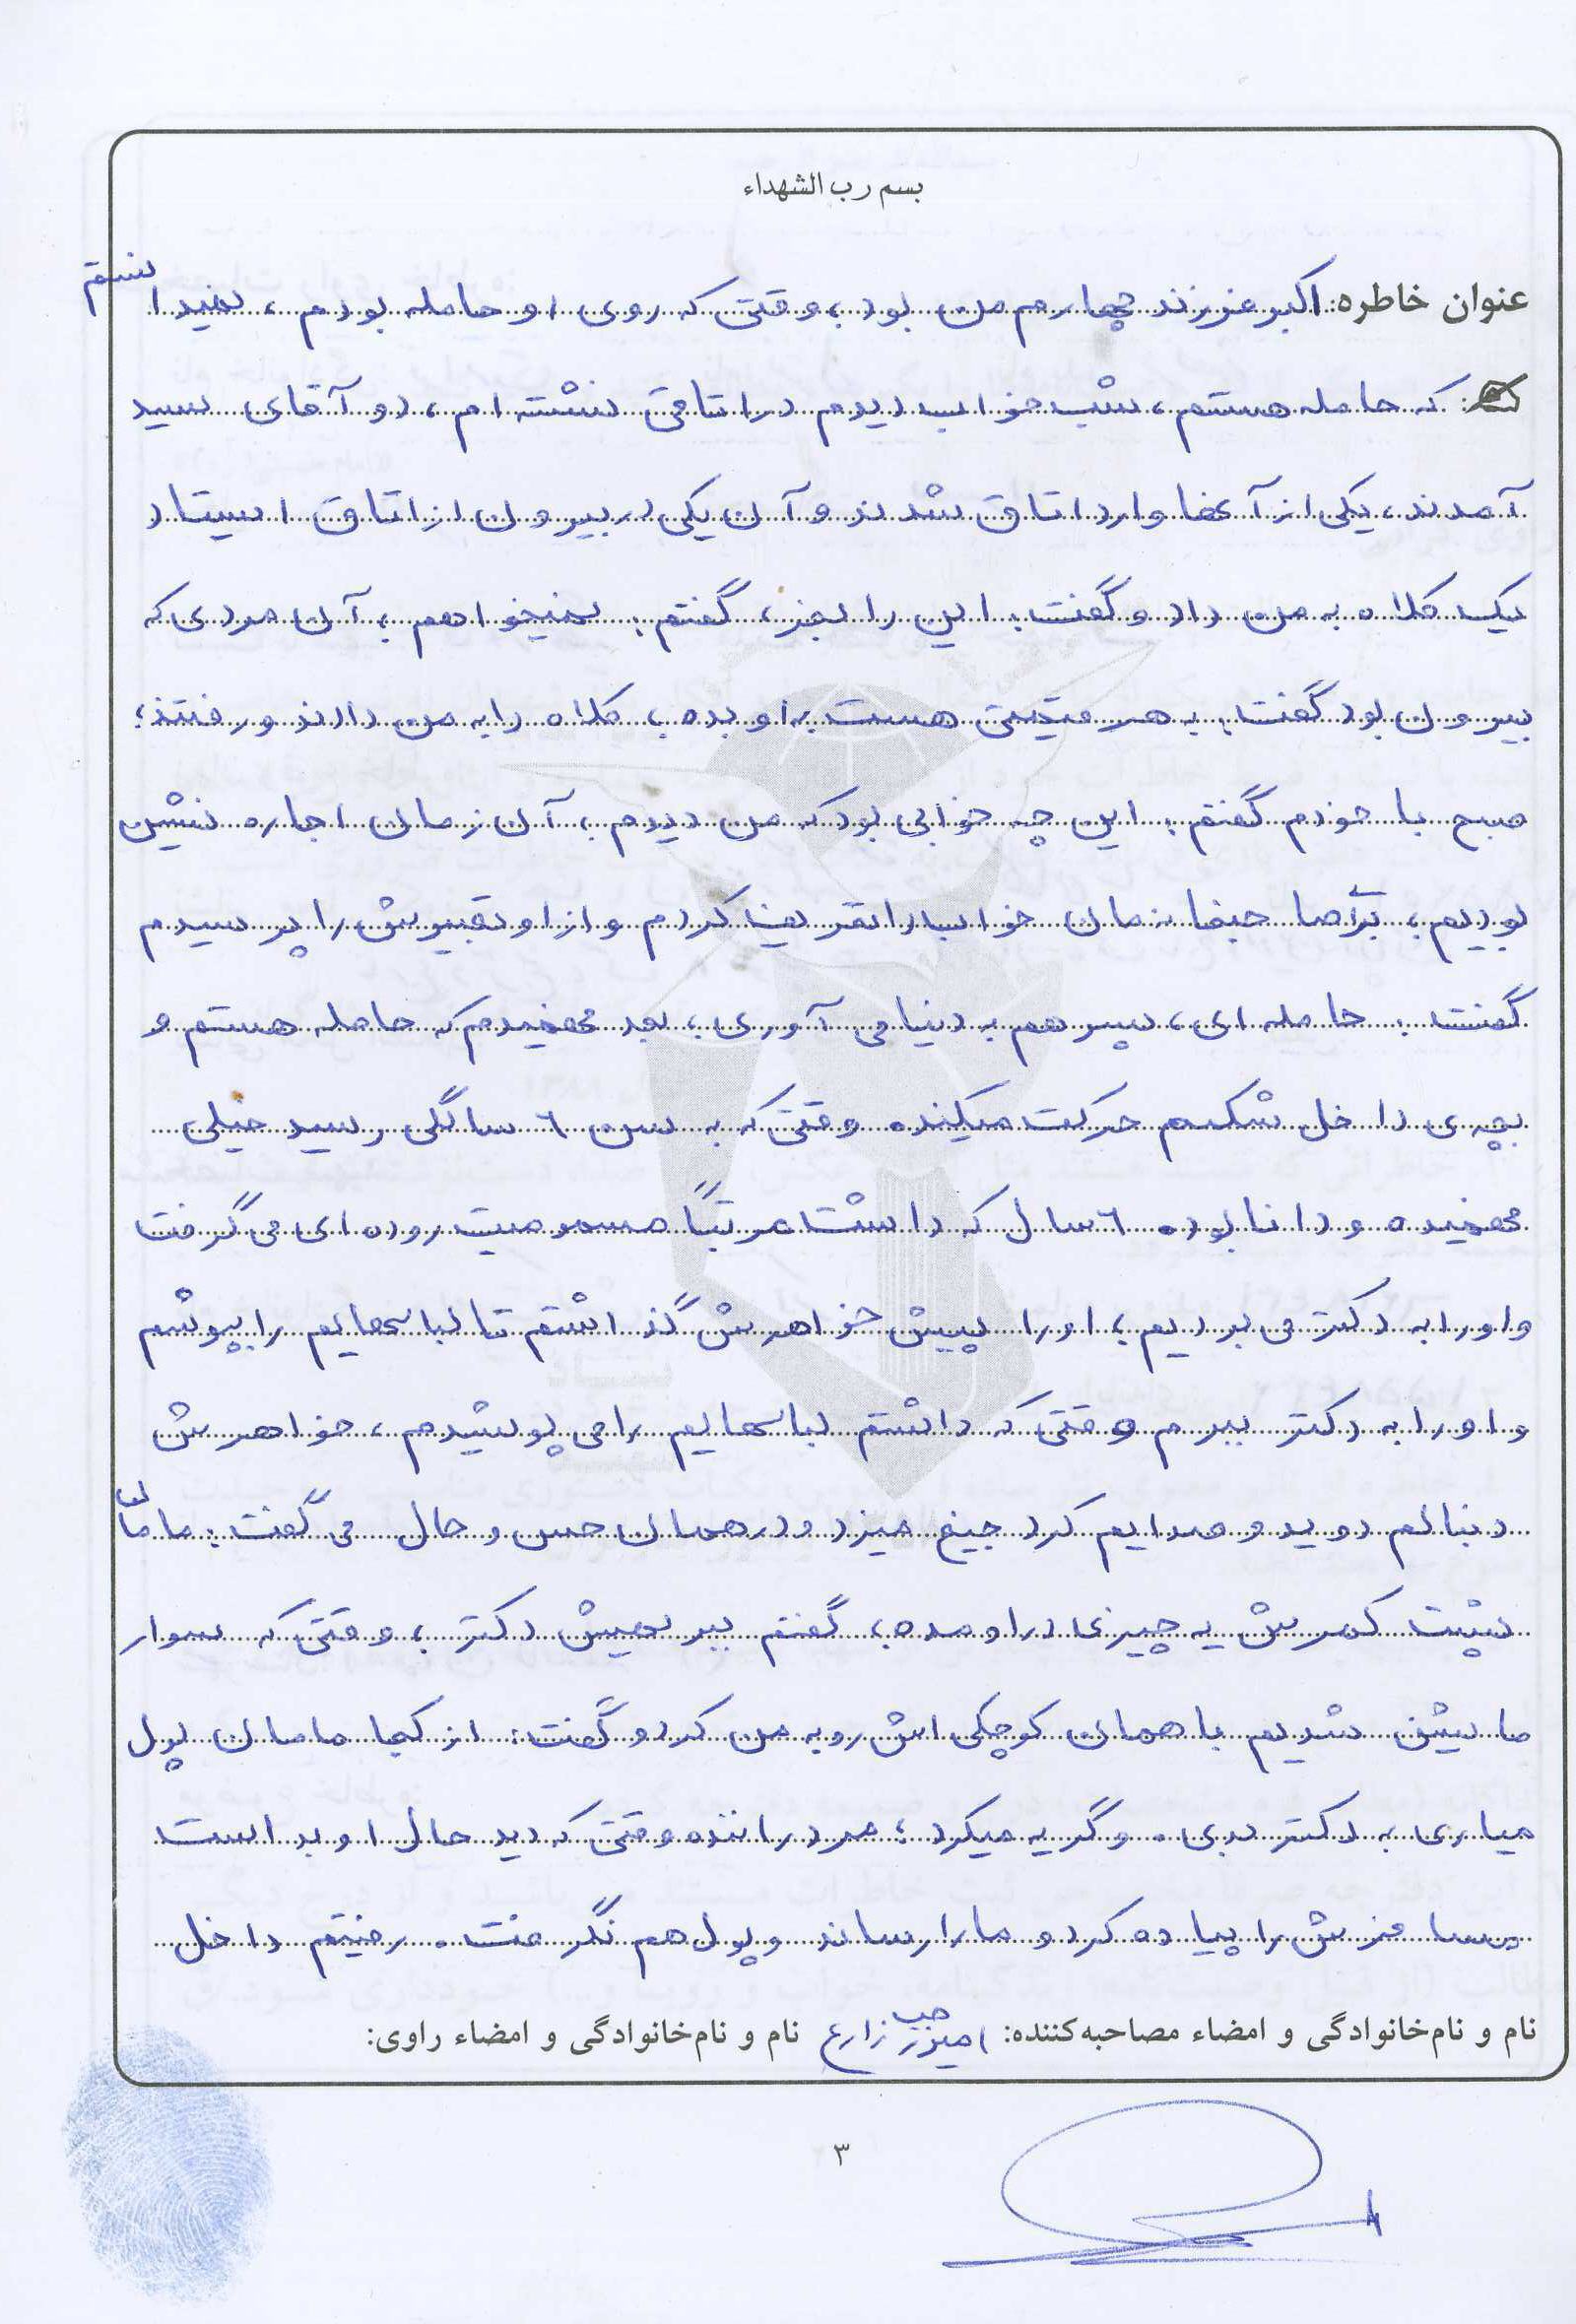 بسم رب الشهداء
عنوان خاطره: اکبر فرزند چهارم من بود، وقتی که روی او حامله بودم، نمیدانستم
که حامله هستم، شب خواب دیدم در اتاقی نشسته ام، دو آقای سید
آمدند، یکی از آنها وارد اتاق شدند و آن یکی در بیرون از اتاق ایستاد
یک کلاه به من داد و گفت: این را بخر، گفتم: نمیخواهم، آن مردی که
بیرون بود گفت: به هر قیمتی هست به او بده، کلاه را به من دادند و رفتند؛
صبح با خودم گفتم: این چه خوابی بود که من دیدم، آن زمان اجاره نشین
بودیم، برا صاحبخانه مان خواب را تعریف کردم و از او تعبیرش را پرسیدم
گفت: حامله ای، پسر هم به دنیا می آوری، بعد فهمیدم که حامله هستم و
بچه ی داخل شکمم حرکت میکند. وقتی که به سن ٦ سالگی رسید خیلی
فهمیده و دانا بود. ٦ سال که داشت مرتباً مسمومیت روده ای می گرفت
و او را به دکتر می بردیم، او را پیش خواهرش گذاشتم تا لباسهایم را بپوشم
و او را به دکتر ببرم وقتی که داشتم لباسهایم را می پوشیدم، خواهرش
دنبالم دوید و صدایم کرد جیغ میزد و در همان حس و حال می گفت: مامان
پشت کمرش یه چیزی در اومده، گفتم ببریمیش دکتر، وقتی که سوار
ماشین شدیم با همان کوچکی اش رو به من کرد و گفت: از کجا مامان پول
میاری به دکتر بدی. و گریه میکرد؛ مرد راننده وقتی که دید حال او بد است
مسافرش را پیاده کرد و ما را رساند و پول هم نگرفت. رفتیم داخل
نام و نام‌خانوادگی و امضاء مصاحبه‌کننده: زارع نام و نام‌خانوادگی و امضاء راوی:
۳